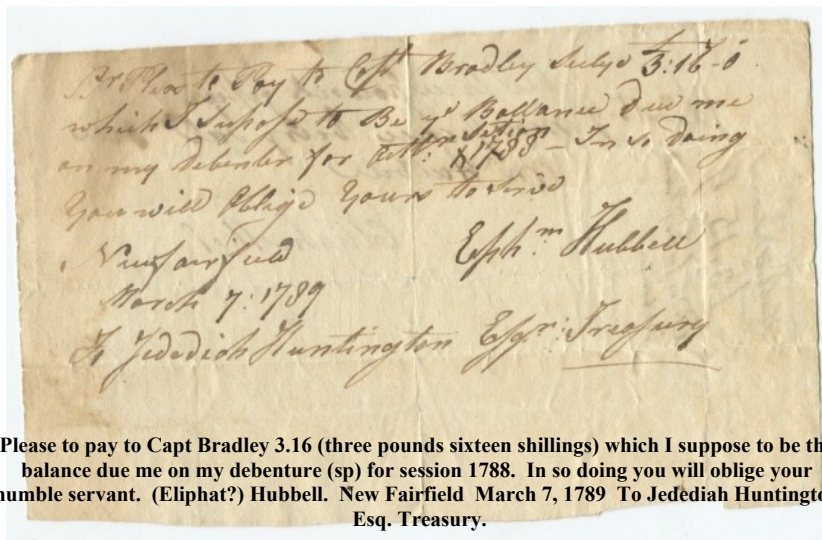 Sr Please to Pay to Capt Bradley July 3:16-0
which I Suppose to Be ye Ballance due me
on my debenter for Session 1788 - In so doing
You will Oblige Yours to Serve
Ephm Hubbell
Newfairfield
March 7: 1789
To Jedediah Huntington Esqr: Treasury
Please to pay to Capt Bradley 3.16 (three pounds sixteen shillings) which I suppose to be th
balance due me on my debenture (sp) for session 1788. In so doing you will oblige your
humble servant. (Eliphat?) Hubbell. New Fairfield March 7, 1789 To Jedediah Huntingto
Esq. Treasury.